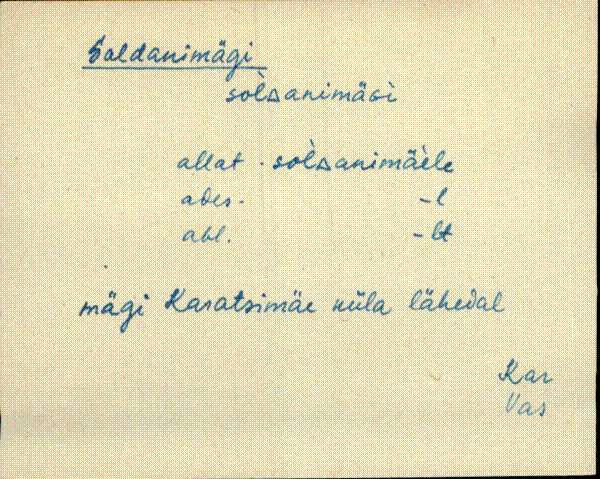 Soldanimägi
sol̀ᴅanimäɢì
allat. sol̀ᴅanimäèle
ades. -l
abl. -lt
mägi Karatsimäe küla lähedal
Kar
Vas